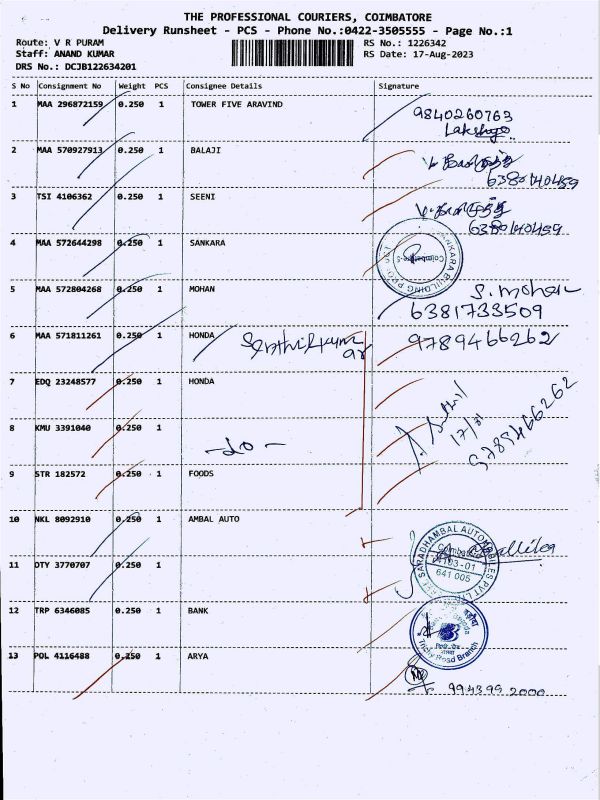 THE PROFESSIONAL COURIERS, COIMBATORE
Delivery Runsheet - PCS - Phone No.:0422-3505555 - Page No.:1
Route: V R PURAM RS No.: 1226342
Staff: ANAND KUMAR RS Date: 17-Aug-2023
DRS No.: DCJB122634201
S No Consignment No Weight PCS Consignee Details Signature
1 MAA 296872159 0.250 1 TOWER FIVE ARAVIND 9840260763
2 MAA 570927913 0.250 1 BALAJI
6380140459
3 TSI 4106362 0.250 1 SEENI
6380140459
4 MAA 572644298 0.250 1 SANKARA
5 MAA 572804268 0.250 1 MOHAN S. mohan
6381733509
6 MAA 571811261 0.250 1 HONDA 9789466262
7 EDQ 23248577 0.250 1 HONDA
17/8
9789466262
8 KMU 3391040 0.250 1
- do -
9 STR 182572 0.250 1 FOODS
10 NKL 8092910 0.250 1 AMBAL AUTO
SARADHAMBAL AUTOMOBILES PVT LTD
641 005
11 DTY 3770707 0.250 1
12 TRP 6346085 0.250 1 BANK
Trichy Road Branch
13 POL 4116488 0.250 1 ARYA
994395 2000